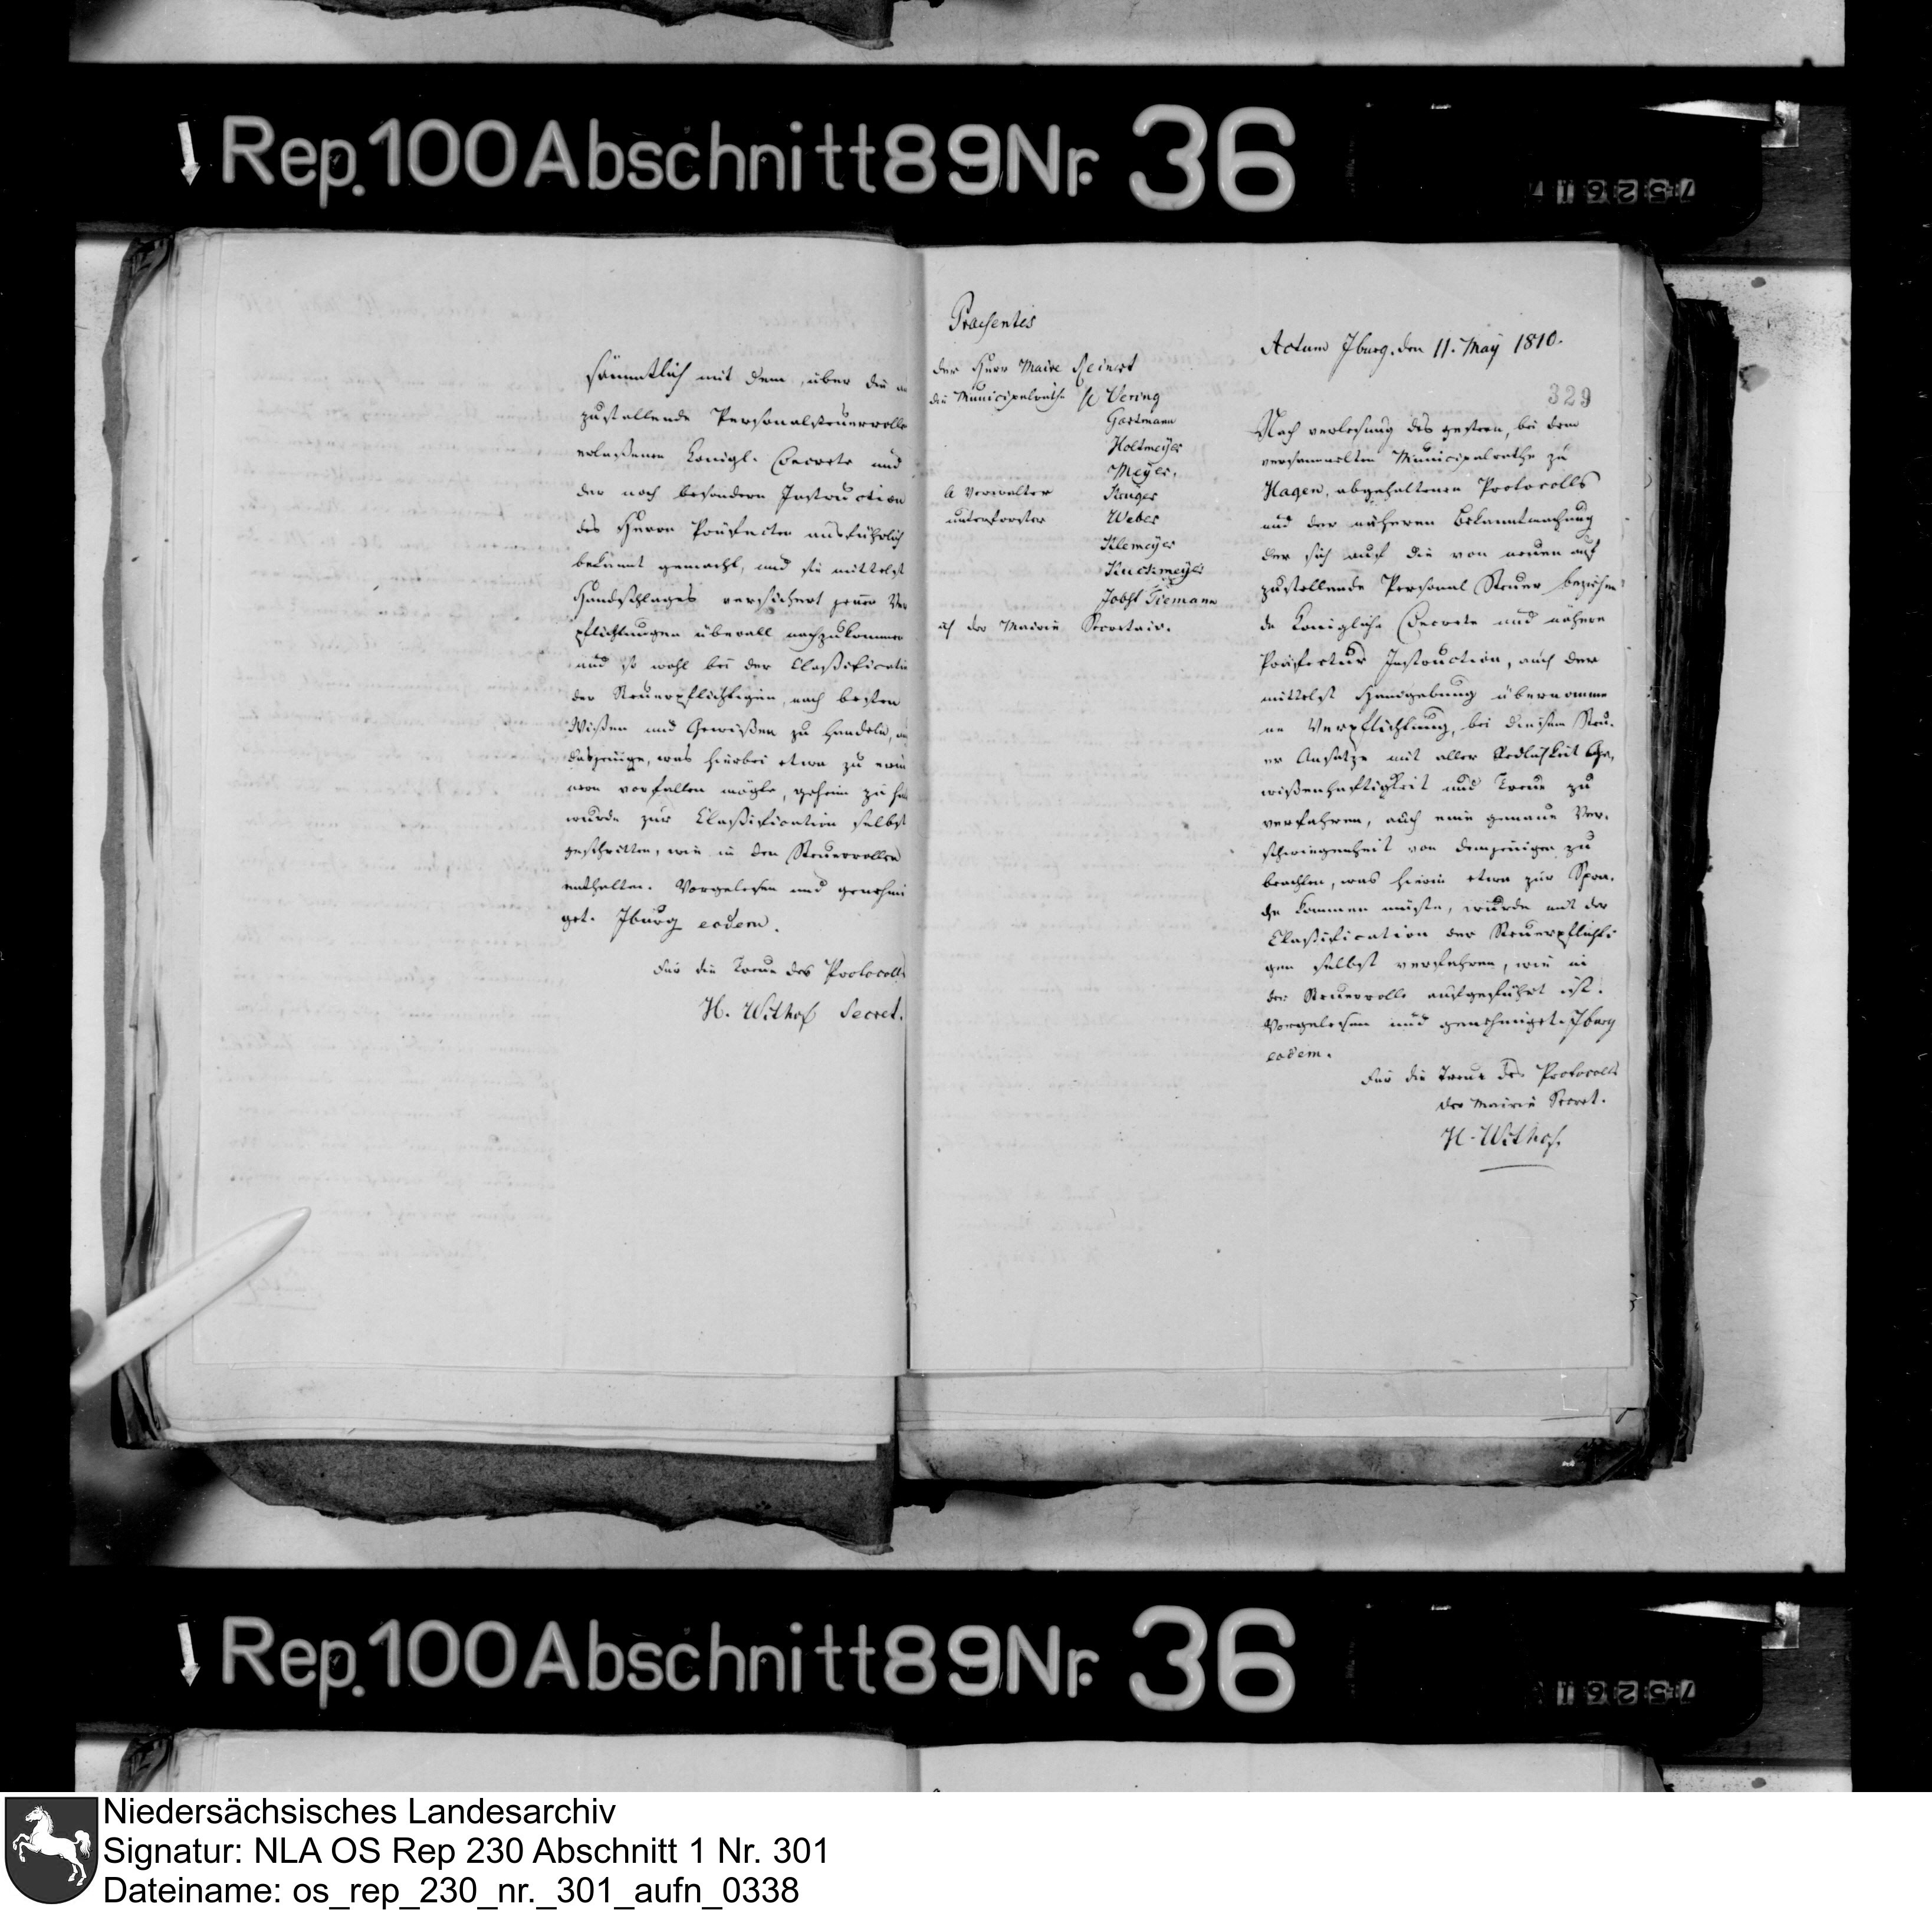 Rep. 100 Abschnitt 89 Nr. 36
75261
sämmtlich mit dem, über die
zustellende Personalsteuerrolle
erlaßenen Königl. Decrete und
der noch besondern Instruction
des Herrn Präfecten ausführlich
bekannt gemacht, und sie mittelst
Handschlages versichert jener Ver
pflichtungen überall nachzukommen
und so wohl bei der Claßification
der Steuerpflichtigen, nach besten
Wißen und Gewißen zu handeln,
dasjenige, was hierbei etwa zu erin
nern vorfallen mögte, geheim zu
wurde zur Claßification selbst
geschritten, wie in den Steuerrollen
enthalten. Vorgelesen und genehmi
get. Iburg eodem.
Für die Treue des Protocolls
H. Withof Secret.
Praesentes
der Herr Maire Reinert
die Municipalräthe Vering
Gartmann
Holtmeyer
Meyer.
Verwalter Krüger
unterforster Weber
Klemeyer
Kuckmeyer
Jobst Tiemann
der Mairie Secretair.
Actum Iburg, den 11. May 1810.
329
Nach verlesung des gestern, bei dem
versammelten Municipalrathe zu
Hagen, abgehaltenen Protocolls
und der näheren Bekanntmachung
der sich auf die von neuen auf
zustellende Personal Steuer beziehen-
de Königliche Decrete und nähere
Präfectur Instruction, auch der
mittelst Handgebung übernomme
ne Verpflichtung, bei diesem Steu-
er Ansatze mit aller Redlichkeit Ge-
wißenhaftigkeit und Treue zu
verfahren, auch eine genaue Ver-
schwiegenheit von demjenigen zu
beachten, was hierin etwa zur Spra-
che kommen müßte, wurde mit der
Claßification der Steuerpflichti
gen selbst verfahren, wie in
der Steuerrolle aufgeführt ist.
Vorgelesen und genehmiget. Iburg
eodem.
Für die Treue des Protocolls
der Mairie Secret.
H. Withof.
Rep. 100 Abschnitt 89 Nr. 36
75261
Niedersächsisches Landesarchiv
Signatur: NLA OS Rep 230 Abschnitt 1 Nr. 301
Dateiname: os_rep_230_nr._301_aufn_0338